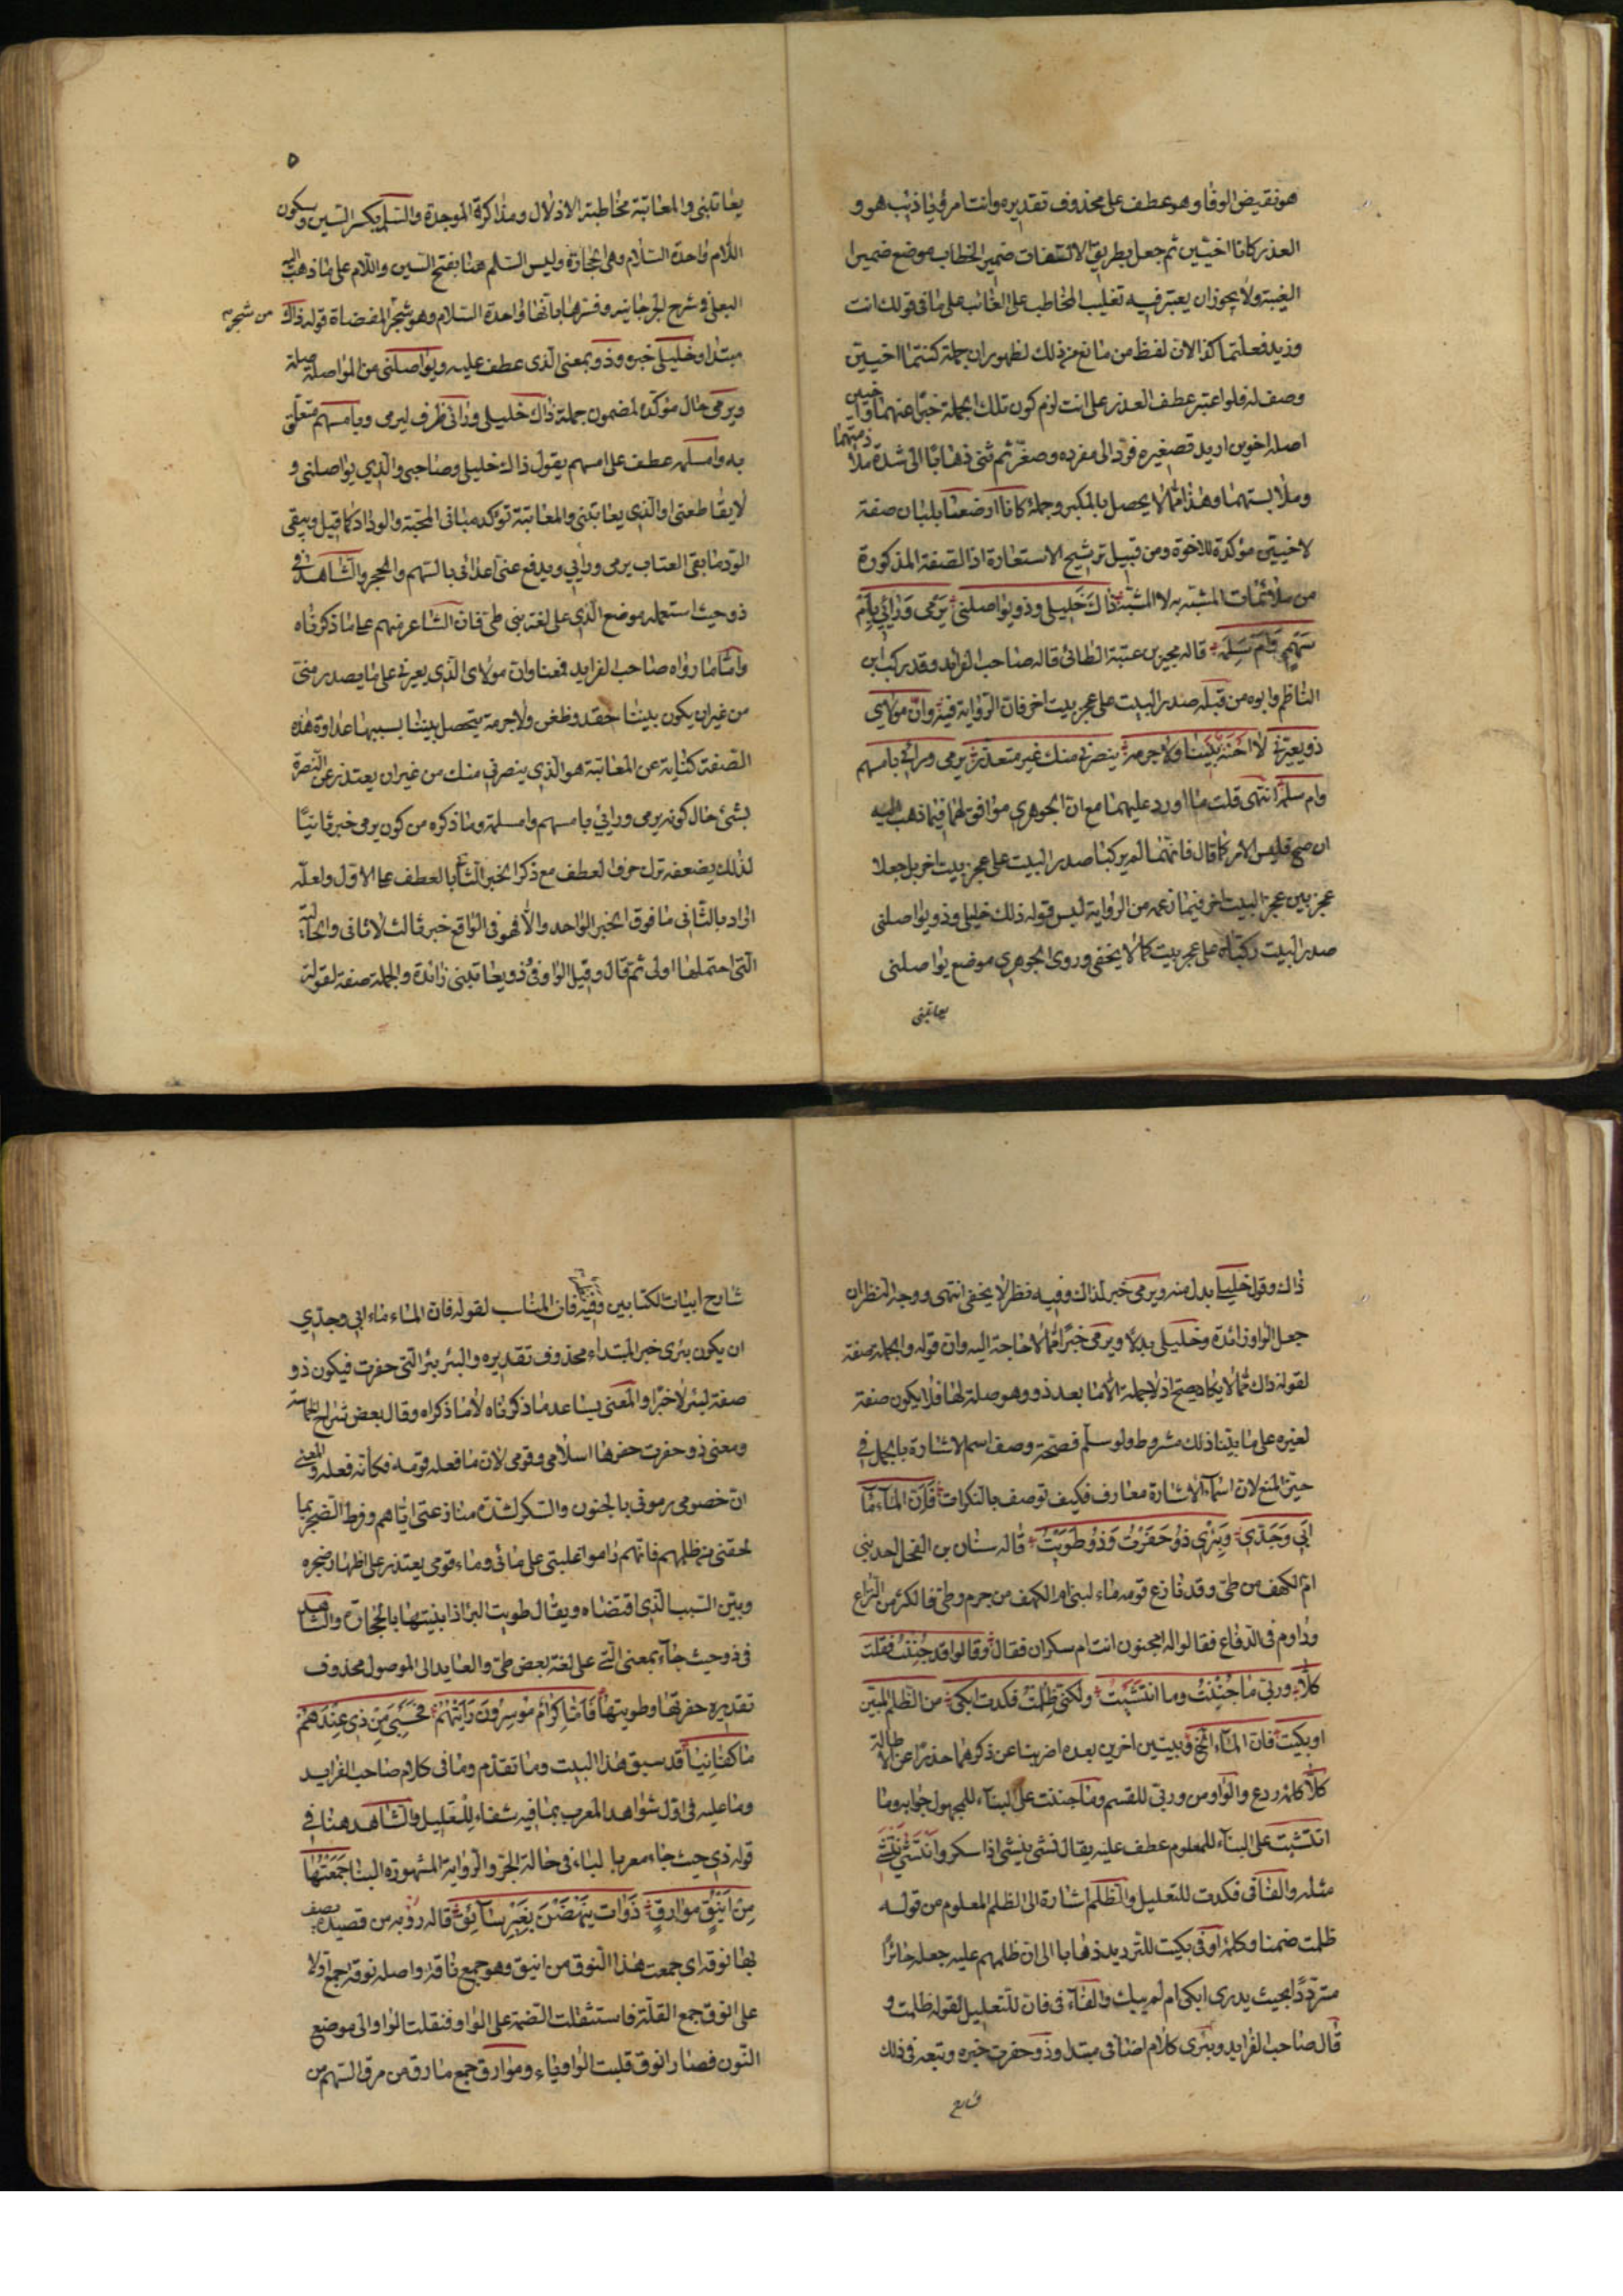 هو نقيض الوفا وهو عطف على محذوف تقديره وانت امرؤ يا ذئب هو و
الغدر كانا اخيين ثم جعل بطريق الالتفات ضمير الخطاب موضع ضميرا
الغيبة ولا يجوز ان يعتبر فيه تغليب المخاطب على الغائب على ما فى قولك انت
وزيد فعلتما كذا لان لفظ من مانع من ذلك لظهور ان جملة كنتما اخيين
وصف له فلو اعتبر عطف الغدر على انت لزم كون تلك الجملة خبرا عنهما واخيين
اصله اخوين اريد تصغيره فرد الى مفرده وصغر ثم ثنى ذهابا الى شدة ملازمتهما
وملابستهما وهذا مما لا يحصل بالمكبر وجملة كانا ارضعا بلبان صفة
لاخيين مؤكدة للاخوة ومن قبيل ترشيح الاستعارة اذ الصفة المذكورة
من ملائمات المشبه به لا المشبه ذاكَ خَليلى وذو يواصلنى يَرمى وَرائى بِامْ
سَهْمِ وَامْ سَلِمَه قاله بجير بن عتبة الطائى قاله صاحب الفرايد وقد ركب ابن
الناظم وابوه من قبله صدر البيت على عجز بيت اخر فان الرواية فيه وان مولاى
ذو يعيرنى لا احنة بيننا ولا جرمه ينصرنى منك غير معتذر يرمى ورائى بامسهم
وام سلمه انتهى قلت ما اورد عليهما مع ان الجوهرى موافق لهما فيما ذهب اليه
ان صح فليس الامر كما قال فانهما لم يركبا صدر البيت على عجز بيت اخر بل جعلا
عجز بين عجز البيت اخر فيما زعمه من الرواية ليس قوله ذلك خليلى وذو يواصلنى
صدر البيت ركباه على عجز بيت كما لا يخفى وروى الجوهرى موضع يواصلنى
يعاتبنى
٥
يعاتبنى والمعاتبة مخاطبة الادلال ومذاكرة الموجدة والسلم بكسر السين وسكون
اللام واحدة السلام وهى الحجارة وليس السلم هنا بفتح السين واللام على ما ذهب اليه
البعلى فى شرح الجرجانيه وفسرها بانها واحدة السلام وهو شجر المفضاة قوله ذاك
من شجر
مبتدا وخليلى خبره وذو بمعنى الذى عطف عليه ويواصلنى من المواصلة صلة
ويرمى حال مؤكدة لمضمون جملة ذاك خليلى ورائى ظرف ليرمى وبامسهم متعلق
به وامسلمه عطف على امسهم يقول ذاك خليلى وصاحبى والذى يواصلنى و
لا يقاطعنى او الذى يعاتبنى والمعاتبة تؤكد مبانى المحبة والوداد كما قيل ويبقى
الود ما بقى العتاب يرمى ورايى ويدفع عنى اعدائى بالسهم والحجر والشاهد فى
ذو حيث استعمله موضع الذى على لغة بنى طى فان الشاعر منهم على ما ذكرناه
واما ما رواه صاحب الفرايد فمعناه ان مولاى الذى يعيرنى على ما يصدر منى
من غير ان يكون بيننا حقد وظغن ولا جرمة يتحصل بيننا بسببها عداوة هذه
الصفة كناية عن المعاتبة هو الذى ينصرنى منك من غير ان يعتذر عن النصرة
بشئ حال كونه يرمى ورايى بامسهم وامسلمة وما ذكره من كون يرمى خبرا ثانيا
لذلك يضعفه ترك حرف العطف مع ذكر الخبر الثانى بالعطف على الاول ولعله
اراد بالثانى ما فوق الخبر الواحد والا فهو فى الواقع خبر ثالث لا ثانى والحالية
التى احتملها اولى ثم قال وقيل الواو فى وذو يعاتبنى زائدة والجملة صفة لقوله
ذاك وقوله خليلى بدل منه ويرمى خبر لذاك وفيه نظر لا يخفى انتهى ووجه النظر ان
جعل الواو زائدة وخليلى بدلا ويرمى خبرا مما لا حاجة اليه وان قوله والجملة صفة
لقوله ذاك مما لا يكاد يصح اذ لا جملة الا ما بعد ذو وهو صلة لها فلا يكون صفة
لغيره على ما بينا ذلك مشروط ولو سلم فصحة وصف اسم الاشارة بالجمل فى
حيز المنع لان اسماء الاشارة معارف فكيف توصف بالنكرات فَاِنَّ الماءَ ماءُ
اَبى وَجَدّى وَبِئْرى ذُو حَفَرْتُ وَذُو طَوَيْتُ قاله سنان بن الفحل احد بنى
ام الكهف من طى وقد نازع قومه ماء لبنى ام الكهف من جرم وطى فالكر من النزاع
وداوم فى الدفاع فقالوا له امجنون انت ام سكران فقال وقالوا قد جُننت فقلت
كلا وربى ما جُنِنْتُ وما انتشيت ولكنى ظُلِمْتُ فكدت ابكى من الظلم المبين
او بكيت فان الماء الخ وبيتين اخرين بعده اضربنا عن ذكرهما حذرا عن الاطالة
كلا كلمة ردع والواو من وربى للقسم وما جننت على البناء للمجهول جوابه وما
انتشيت على البناء للمعلوم عطف عليه يقال نشى ينشى اذا سكر وانتشى ينتشى
مثله والفاء فى فكدت للتعليل والظلم اشارة الى الظلم المعلوم من قوله
ظلمت ضمنا وكلمة او فى بكيت للترديد ذهابا الى ان ظلمهم عليه جعله حائرا
مترددا بحيث يدرى ابكى ام لم يبك والفاء فى فان للتعليل لقوله ظلمت و
قال صاحب الفرايد وبئرى كلام اضافى مبتدا وذو حفرت خبره وتبعه فى ذلك
شارح
شارح ابيات الكتابين وفيه فان المناسب لقوله فان الماء ماء ابى وجدى
ان يكون بئرى خبر المبتداء محذوف تقديره والبئر بئر التى حفرت فيكون ذو
صفة لبئر لا خبرا والمعنى يساعد ما ذكرناه لا ما ذكراه وقال بعض شراح الحماسة
ومعنى ذو حفرت حفرها اسلامى وقومى لان ما فعله قومه فكانه فعله والمعنى
ان خصومى رمونى بالجنون والسكر لشدة منازعتى اياهم وفرط التضجر بما
لحقنى من ظلمهم فانهم داموا غلبتى على مائى وماء قومى يعتذر على اظهار ضجره
وبين السبب الذى اقتضاه ويقال طويت البر اذا بنيتها بالحجارة والشاهد
فى ذو حيث جاء بمعنى التى على لغة بعض طى والعايد الى الموصول محذوف
تقديره حفرتها وطويتها فَاَمّا كِرامٌ مُوسِرُونَ رَاَيْتُهُمْ فَحَسْبِىَ مِنْ ذى عِنْدَهُمْ
ما كَفانِيا قد سبق هذا البيت وما تقدم وما فى كلام صاحب الفرايد
وما عليه فى اول شواهد المعرب بما فيه شفاء للغليل والشاهد هنا فى
قوله ذى حيث جاء معربا لباء فى حالة الجر والرواية المشهورة البنا جَمَعْتُها
مِنْ اَيْنُقٍ مَوارِقٍ ذَوات يَنْهَضْنَ بِغَيْرِ سائِق قاله رؤبه من قصيدة يصف
بها نوقه اى جمعت هذا النوق من اينق وهو جمع ناقة واصله نوقة جمع اولا
على انوق جمع القلة فاستثقلت الضمة على الواو فنقلت الواو الى موضع
النون فصار اونق قلبت الواو ياء وموارق جمع مارق من مرق السهم من